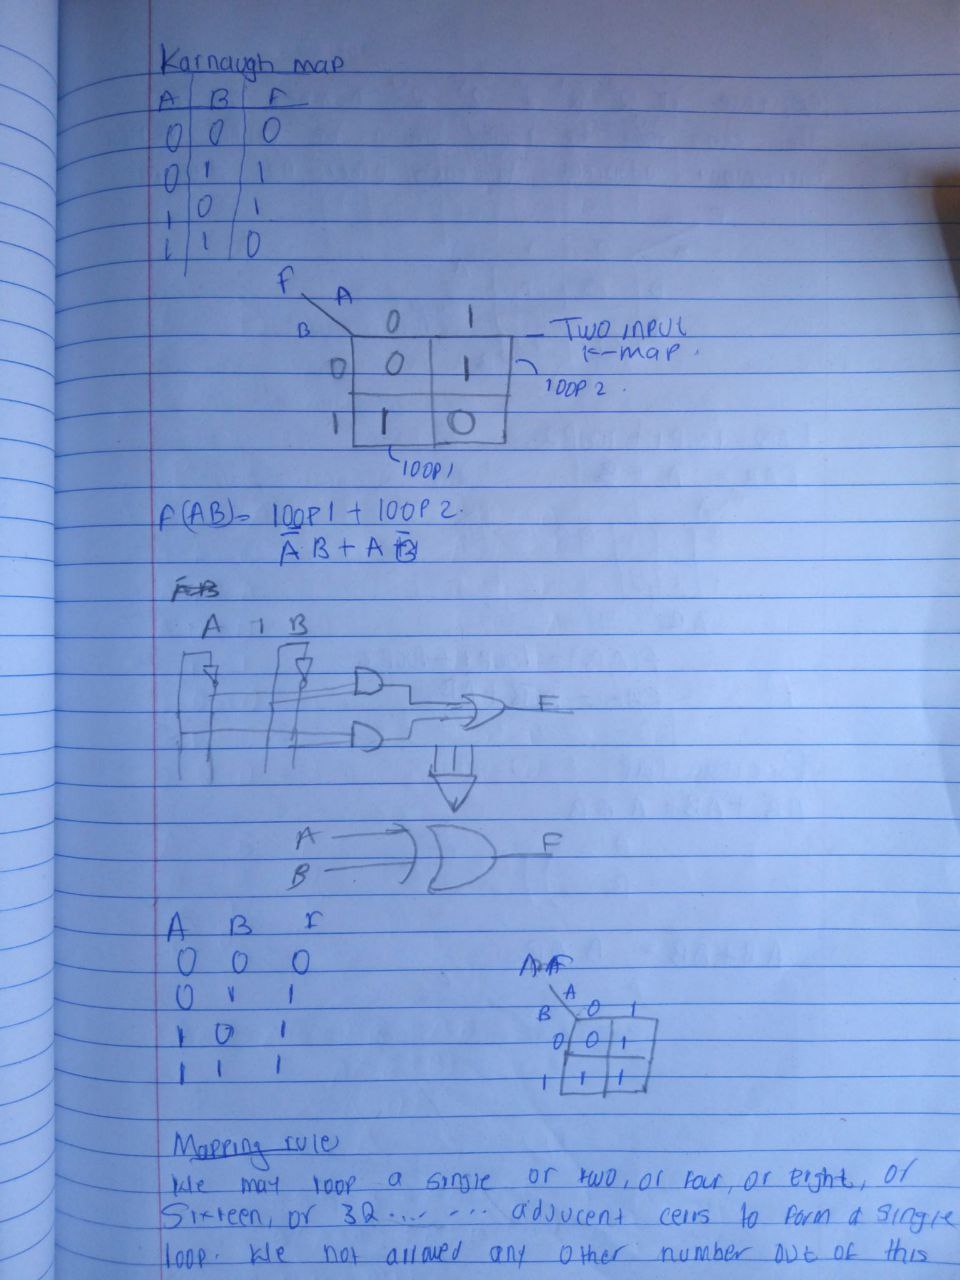 Karnaugh map
A B F
0 0 0
0 1 1
1 0 1
1 1 0
F A
B 0 1
0 0 1
1 1 0
- Two input
K-map.
loop 2.
loop 1
F(AB)= loop 1 + loop 2.
A̅ B + A B̅
A B
F
A
B
F
A B F
0 0 0
0 1 1
1 0 1
1 1 1
A
B 0 1
0 0 1
1 1 1
Mapping rule
We may loop a single or two, or four, or eight, or
Sixteen, or 32 ........ adjucent cells to form a single
loop. We not allowed any other number out of this